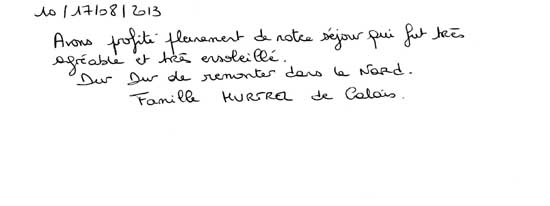 10/17/08/2013
Avons profité pleinement de notre séjour qui fut très
agréable et très ensoleillé.
Dur Dur de remonter dans le Nord.
Famille HURTREL de Calais.